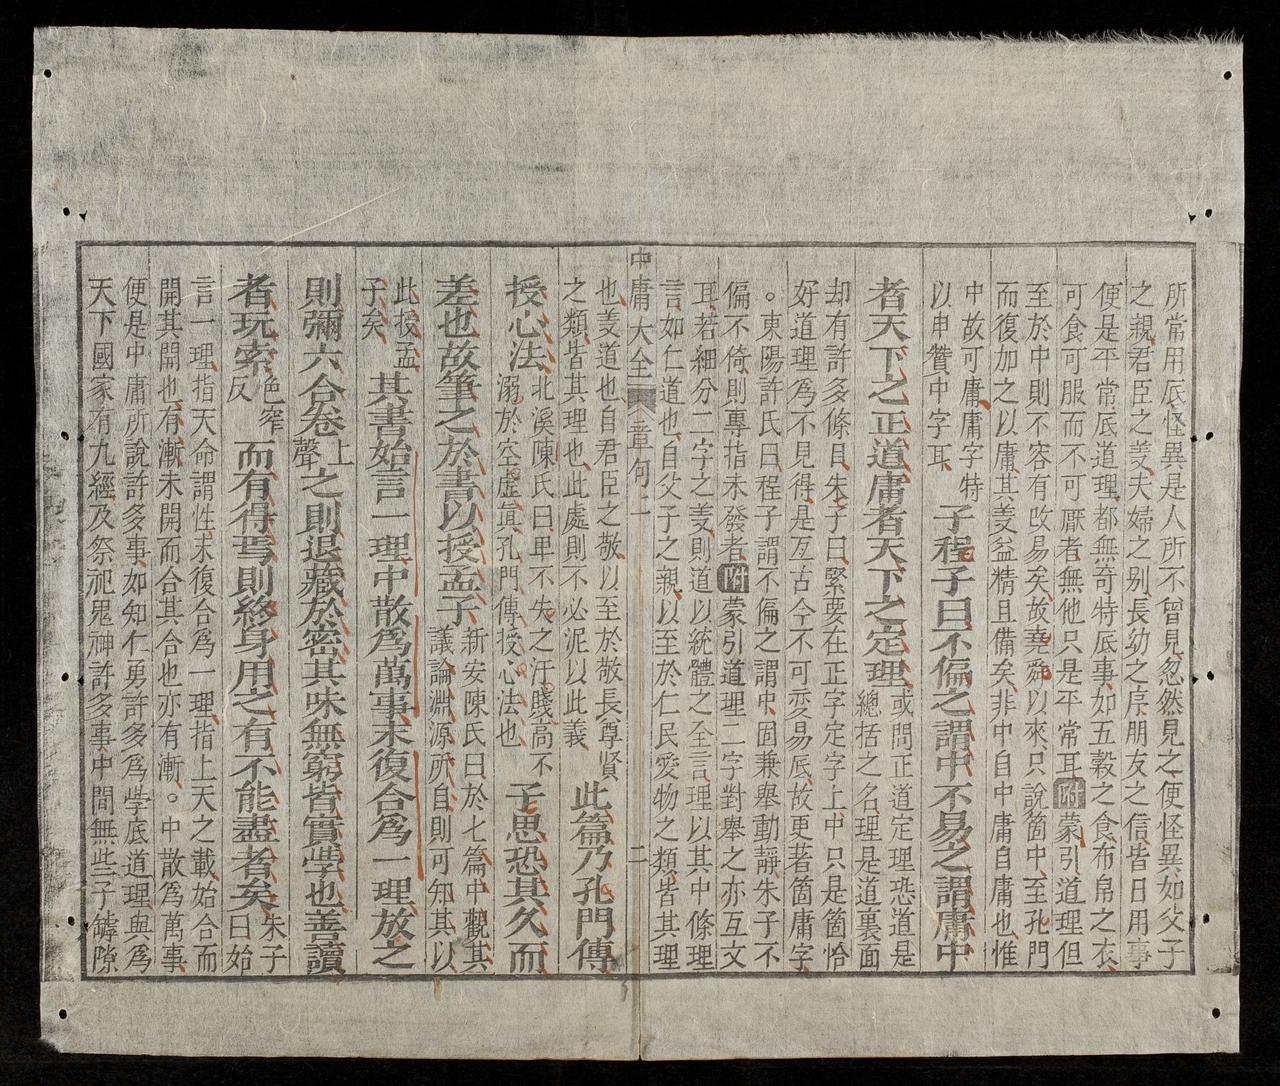 所常用底怪異是人所不曾見忽然見之便怪異如父子
之親君臣之義夫婦之别長幼之序朋友之信皆日用事
便是平常底道理都無竒特底事如五穀之食布帛之衣
可食可服而不可厭者無他只是平常耳附蒙引道理但
至於中則不容有攺易矣故堯舜以來只說箇中至孔門
而復加之以庸其義益精且備矣非中自中庸自庸也惟
中故可庸庸字特
以申贊中字耳
子程子曰不偏之謂中不易之謂庸中
者天下之正道庸者天下之定理
或問正道定理恐道是
總括之名理是道裏面
却有許多條目朱子曰緊要在正字定字上中只是箇恰
好道理爲不見得是亙古今不可変易底故更著箇庸字
。東陽許氏曰程子謂不偏之謂中固兼舉動靜朱子不
偏不倚則專指未發者附蒙引道理二字對舉之亦互文
耳若細分二字之義則道以統體之全言理以其中條理
言如仁道也自父子之親以至於仁民愛物之類皆其理
中庸大全 章句 二
也義道也自君臣之敬以至於敬長尊賢
之類皆其理也此處則不必泥以此義
此篇乃孔門傳
授心法
北溪陳氏曰卑不失之汙賤高不
溺於空虛眞孔門傳授心法也
子思恐其久而
差也故筆之於書以授孟子
新安陳氏曰於七篇中觀其
議論淵源所自則可知其以
此授孟
子矣
其書始言一理中散爲萬事末復合爲一理放之
則彌六合卷上聲之則退藏於密其味無窮皆實學也善讀
者玩索
色窄
反
而有得焉則終身用之有不能盡者矣
朱子
曰始
言一理指天命謂性末復合爲一理指上天之載始合而
開其開也有漸末開而合其合也亦有漸。中散爲萬事
便是中庸所說許多事如知仁勇許多爲學底道理與爲
天下國家有九經及祭祀鬼神許多事中間無些子罅隙